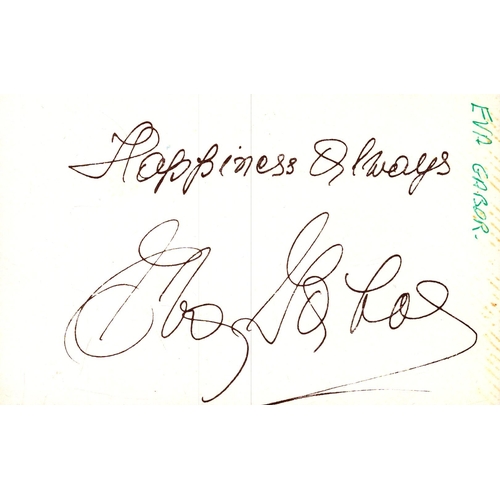 Happiness Always
Eva Gabor
EVA GABOR.